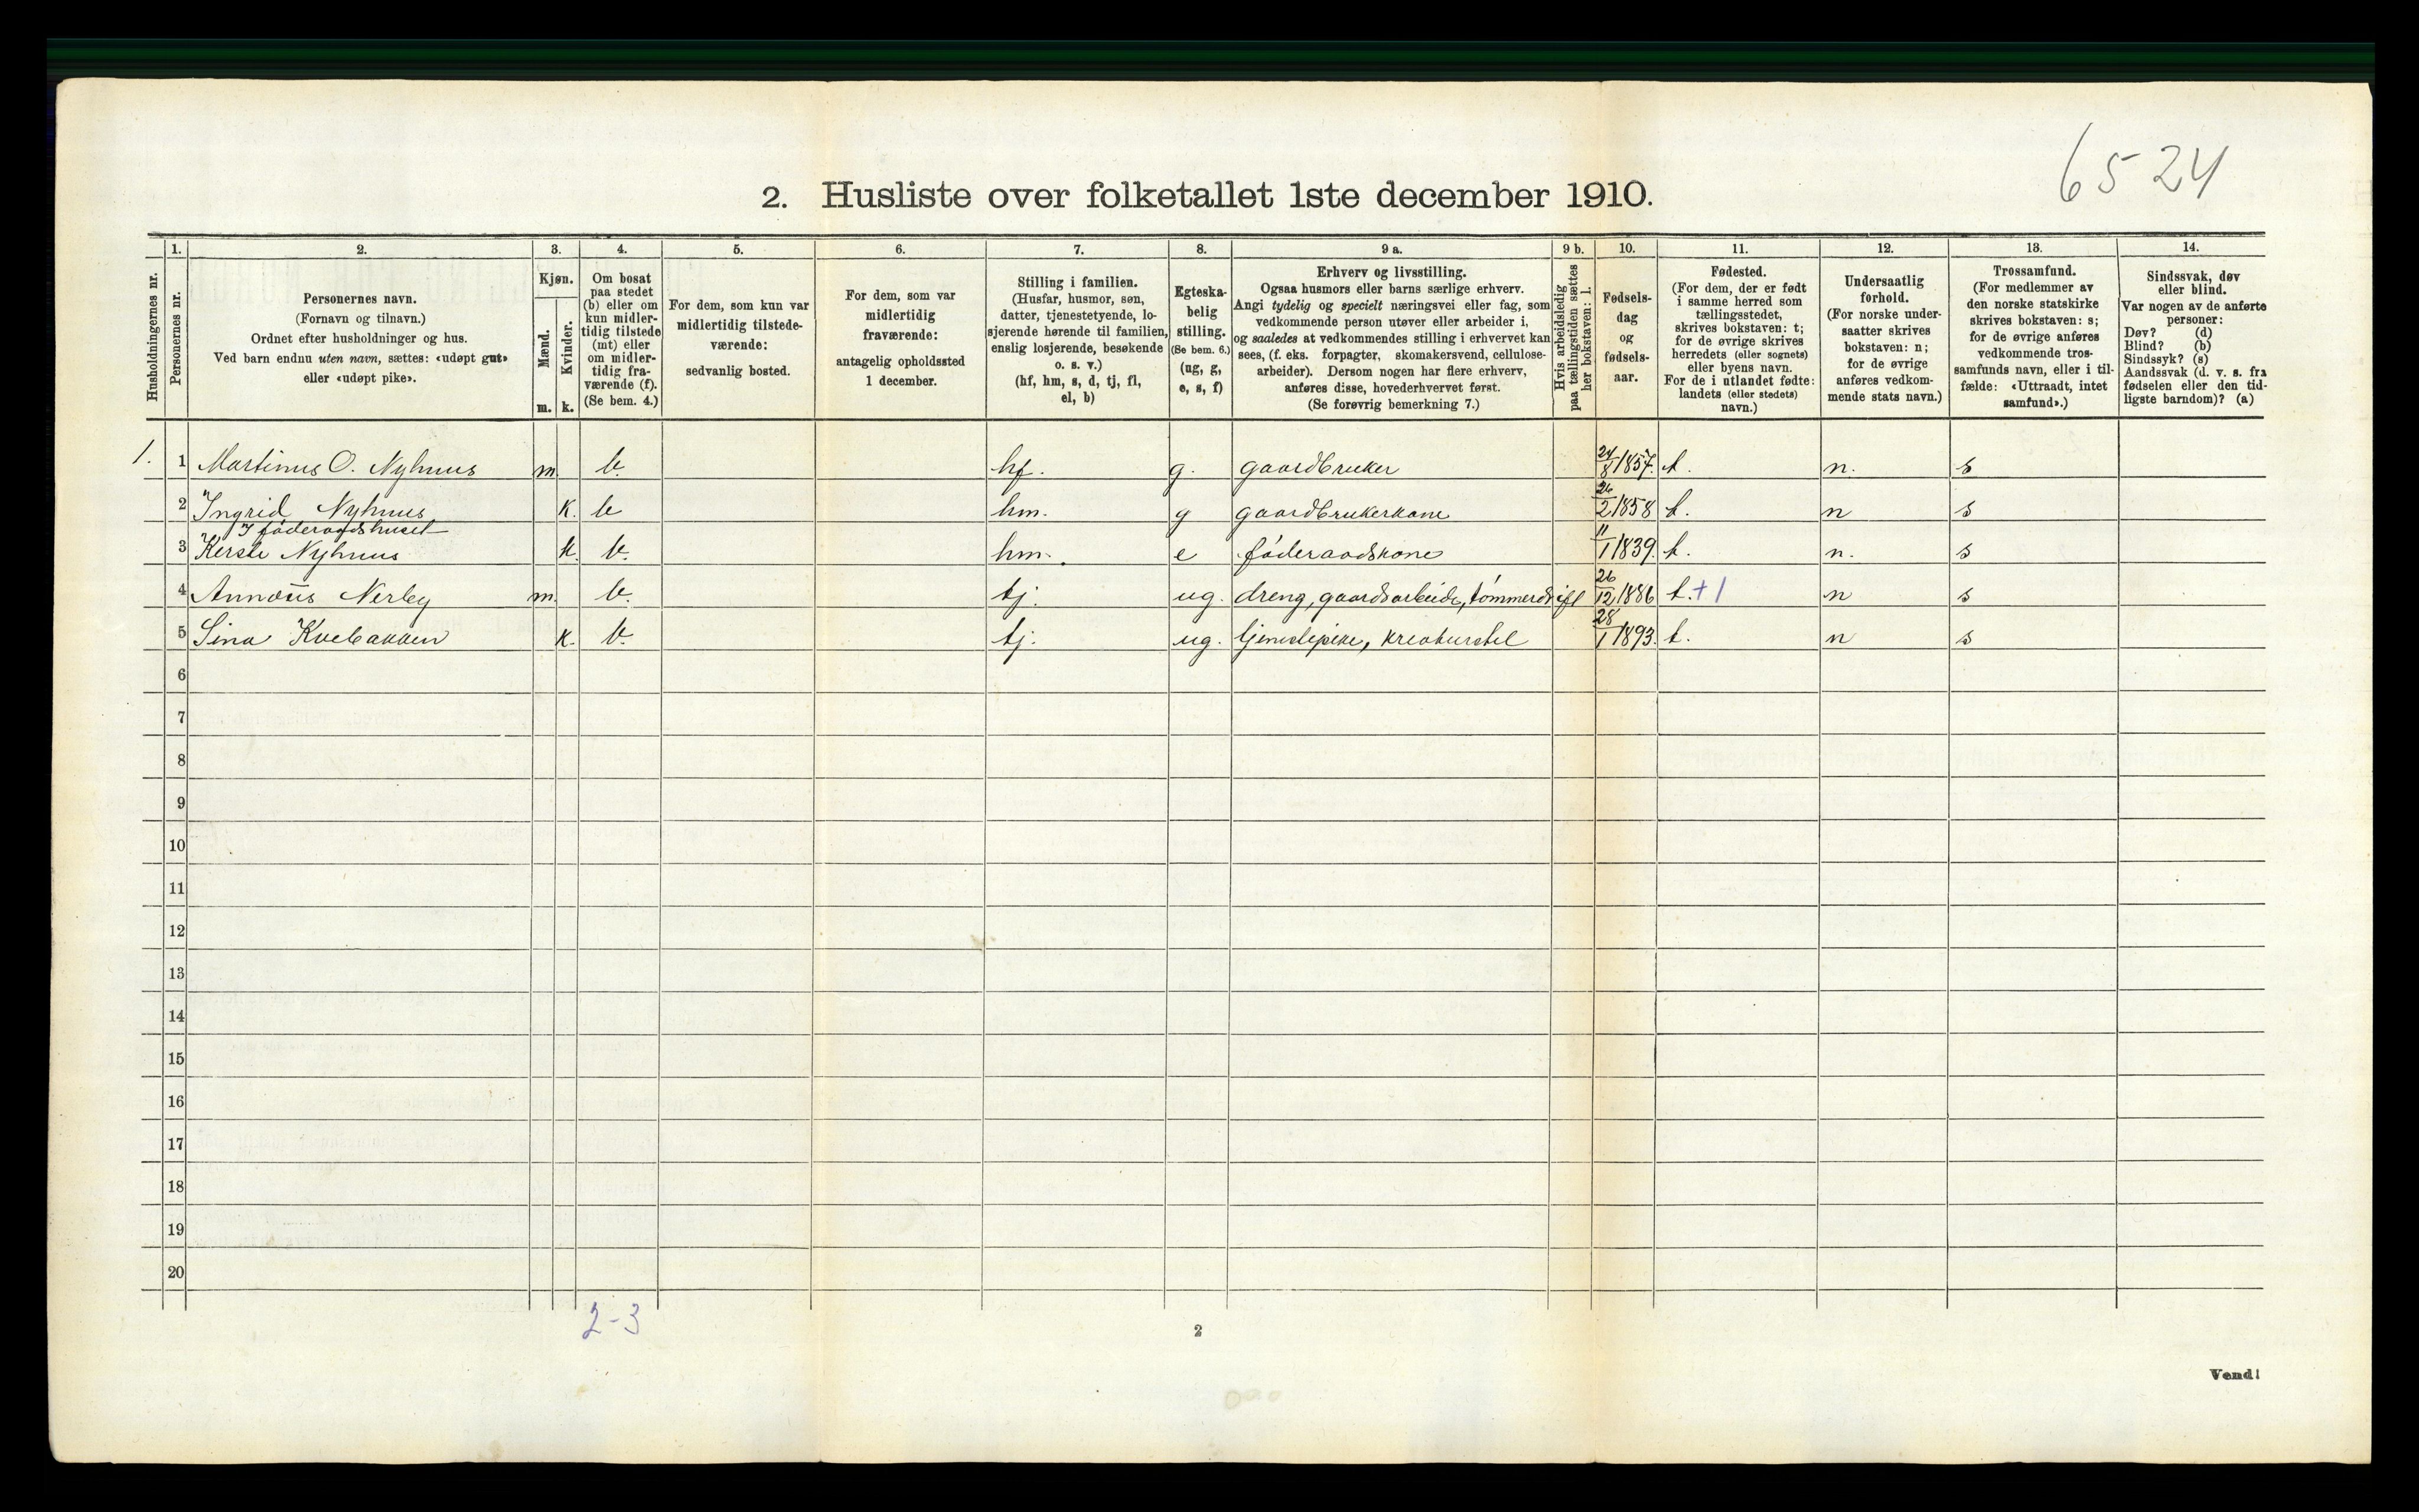 65 24
2. Husliste over folketallet 1ste december 1910.
Husholdningernes nr.
1.
Personernes nr.
2.
Personernes navn.
(Fornavn og tilnavn.)
Ordnet efter husholdninger og hus.
Ved barn endnu uten navn, sættes: «udøpt gut»
eller «udøpt pike».
3.
Kjøn.
Mænd.
Kvinder.
m. k.
4.
Om bosat
paa stedet
(b) eller om
kun midler-
tidig tilstede
(mt) eller
om midler-
tidig fra-
værende (f).
(Se bem. 4.)
5.
For dem, som kun var
midlertidig tilstede-
værende:
sedvanlig bosted.
6.
For dem, som var
midlertidig
fraværende:
antagelig opholdssted
1 december.
7.
Stilling i familien.
(Husfar, husmor, søn,
datter, tjenestetyende, lo-
sjerende hørende til familien,
enslig losjerende, besøkende
o. s. v.)
(hf, hm, s, d, tj, fl,
el, b)
8.
Egteska-
belig
stilling.
(Se bem. 6.)
(ug, g,
e, s, f)
9 a.
Erhverv og livsstilling.
Ogsaa husmors eller barns særlige erhverv.
Angi tydelig og specielt næringsvei eller fag, som
vedkommende person utøver eller arbeider i,
og saaledes at vedkommendes stilling i erhvervet kan
sees, (f. eks. forpagter, skomakersvend, cellulose-
arbeider). Dersom nogen har flere erhverv,
anføres disse, hovederhvervet først.
(Se forøvrig bemerkning 7.)
9 b.
Hvis arbeidsledig
paa tællingstiden sættes
her bokstaven: l.
10.
Fødsels-
dag
og
fødsels-
aar.
11.
Fødested.
(For dem, der er født
i samme herred som
tællingsstedet,
skrives bokstaven: t;
for de øvrige skrives
herredets (eller sognets)
eller byens navn.
For de i utlandet fødte:
landets (eller stedets)
navn.)
12.
Undersaatlig
forhold.
(For norske under-
saatter skrives
bokstaven: n;
for de øvrige
anføres vedkom-
mende stats navn.)
13.
Trossamfund.
(For medlemmer av
den norske statskirke
skrives bokstaven: s;
for de øvrige anføres
vedkommende tros-
samfunds navn, eller i til-
fælde: «Uttraadt, intet
samfund».)
14.
Sindssvak, døv
eller blind.
Var nogen av de anførte
personer:
Døv? (d)
Blind? (b)
Sindssyk? (s)
Aandssvak (d. v. s. fra
fødselen eller den tid-
ligste barndom)? (a)
1. 1 Martinus O. Nyhuus m. b. hf. g. gaardbruker 24/8 1857. t. n. s
2 Ingrid Nyhuus k. b hm. g gaardbrukerkone 26/2 1858 t. n s
I føderaadshuset
3 Kersti Nyhuus k. b. hm. e føderaadskone 11/1 1839. t. n. s
4 Nerby m. b. tj. ug. dreng, gaardsarbeide, tømmerdrift 26/12 1886 t. +1 n s
5 Sina Kvebakken k. b. tj. ug. tjenestepike, kreaturstel 28/1 1893. t. n s
6
7
8
9
10
11
12
13
14
15
16
17
18
19
20
2-3
2
Vend!